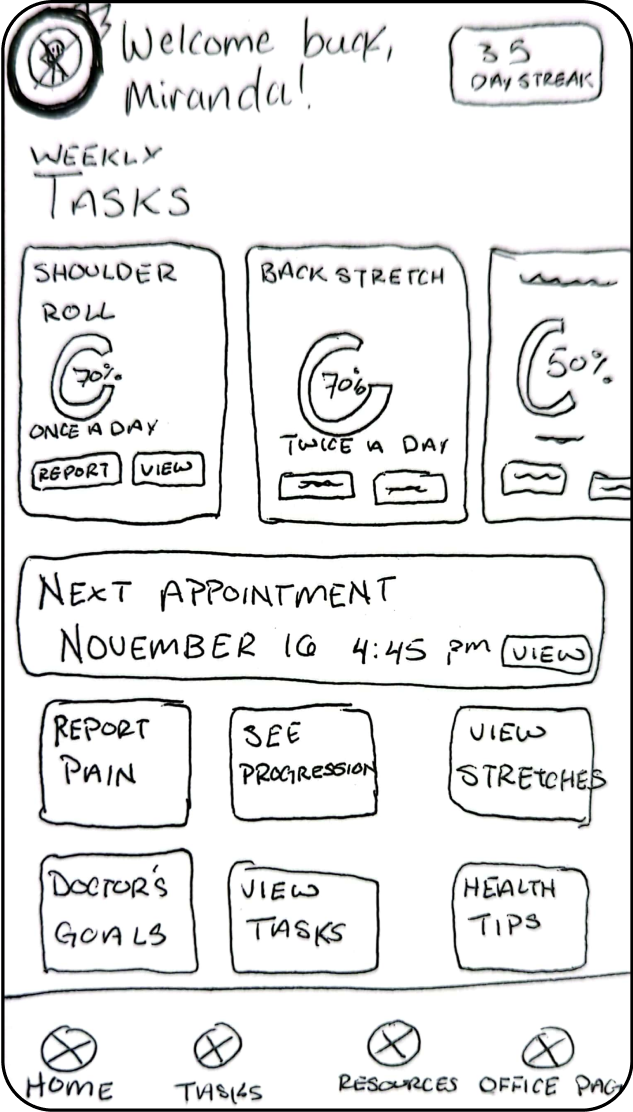 Welcome back,
Miranda!
35
DAY STREAK
WEEKLY
TASKS
SHOULDER
ROLL
70%
ONCE A DAY
REPORT
VIEW
BACK STRETCH
70%
TWICE A DAY
50%
NEXT APPOINTMENT
NOVEMBER 16 4:45 pm VIEW
REPORT
PAIN
SEE
PROGRESSION
VIEW
STRETCHES
DOCTOR'S
GOALS
VIEW
TASKS
HEALTH
TIPS
HOME
TASKS
RESOURCES
OFFICE PAG